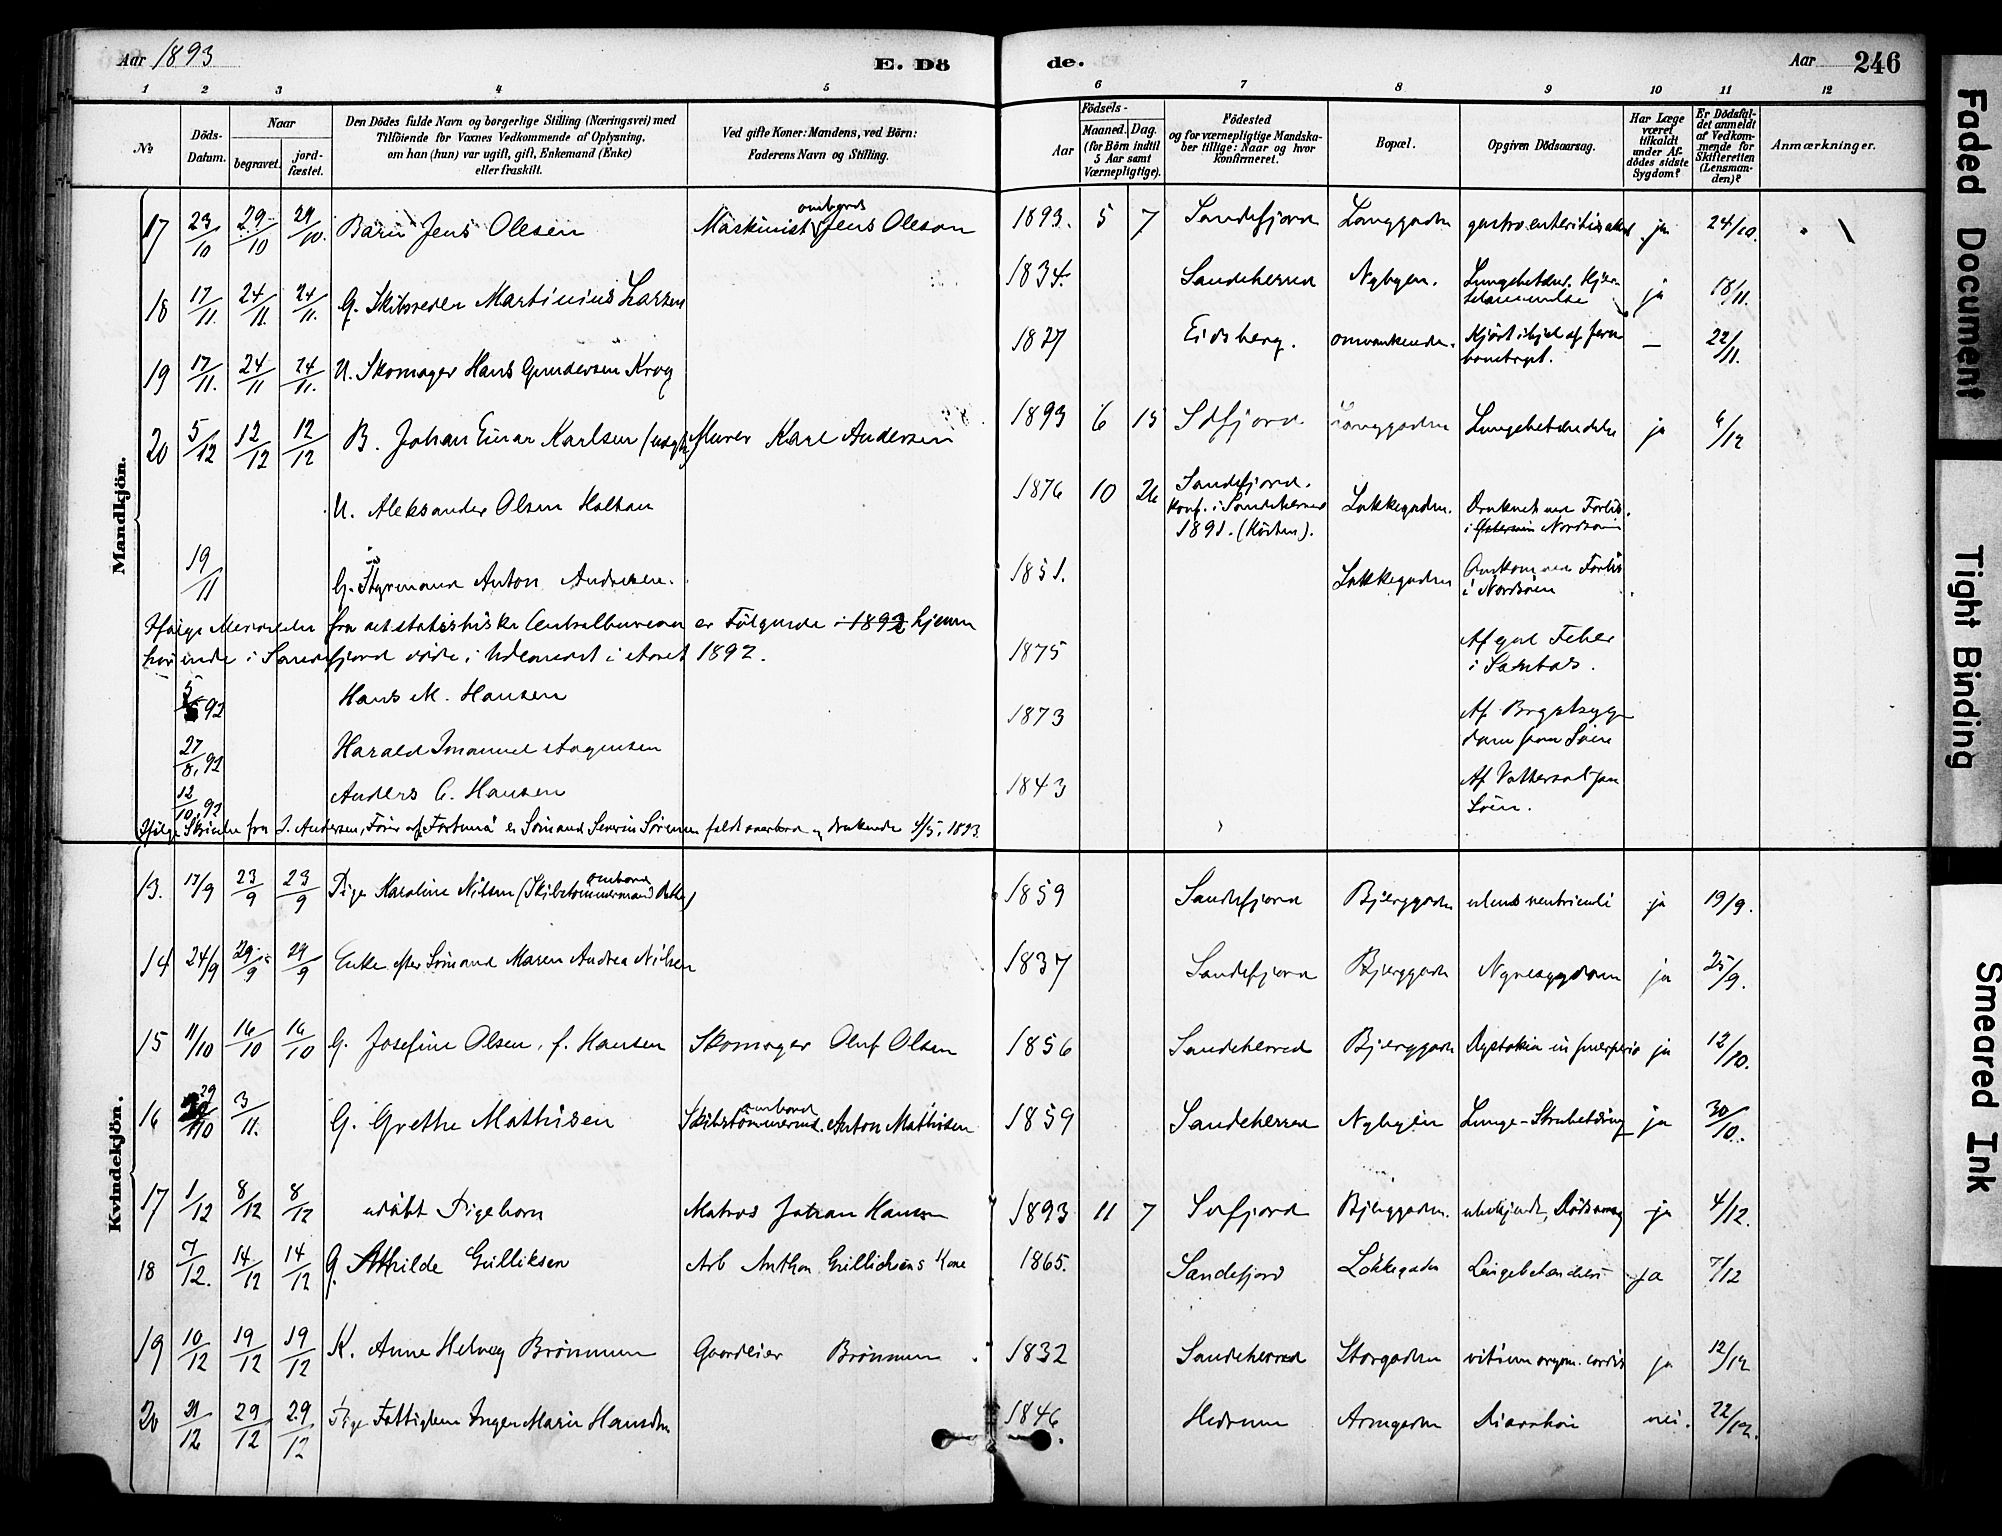 Aar 1893
E. Dö
de.
Aar
246
1 2 3 4 5 6 7 8 9 10 11 12
No
Döds-Datum.
Naar
begravet.
jord-fæstet.
Den Dödes fulde Navn og borgerlige Stilling (Næringsvei) med
Tilföiende for Voxnes Vedkommende af Oplysning.
om han (hun) var ugift, gift, Enkemand (Enke)
eller fraskilt.
Ved gifte Koner: Mandens, ved Börn:
Faderens Navn og Stilling.
Födsels-
Aar
Maaned. Dag.
(for Börn indtil
5 Aar samt
Værnepligtige).
Födested
og for værnepligtige Mandska-
ber tillige: Naar og hvor
konfirmeret.
Bopæl.
Opgiven Dödsaarsag.
Har Læge
været
tilkaldt
under Af-
dödes sidste
Sygdom?
Er Dödsfal-
det anmeldt
af Vedkom-
mende for
Skifteretten
(Lensman-
den)?
Anmærkninger.
Mandkjön.
17 23/10 29/10 29/10. Barn Jens Olesen Maskinist ombord Jens Oleson 1893. 5 7 Sandefjord Langgaden gastro enteritis ja 24/10.
18 17/11. 24/11. 24/11. G. Skibsreder Martinius Larsen 1834. Sandeherred Nybyen. ja 18/11.
19 17/11. 24/11 24/11. U. Skomager Hans Gundersen Krog 1827 Eidsberg. omvankende. Kjørt ihjel af jern
banetoget. — 22/11.
20 5/12 12/12 12/12 B. Johan Einar Karlsen Murer Karl Andersen 1893 6 15 Sdfjord Langgaden Lungebetændelse ja 6/12
U. Aleksander Olsen Holtan 1876 10 26 Sandefjord.
konf. i Sandeherred
1891. Løkkegaden. Druknet ved Forlis
i Nordsøen
19/11 G. Styrmand Anton Andresen. 1851. Løkkegaden Omkom ved Forlis
i Nordsøen
Ifølge Meddelelse fra det statistiske Centralbureau er Følgende i 1892 hjemme
hørende i Sandefjord døde i Udlandet i Aaret 1892.
92 Hans M. Hansen 1875 Af gul Feber
i Santos.
27/8. 92 Harald Imanuel Aagensen 1873 Af Brystsyg
dom paa Søen
12/10. 92 Anders C. Hansen 1843 Af Vattersot paa
Søen.
Ifølge Skrivelse fra J. Andersen, Fører af "Fortuna" er Sømand Severin Sørensen faldt overbord og druknede 4/5. 1893.
Kvindekjön.
13. 17/9 23/9 23/9 Pige Karoline Nilsen (Skibstømmermand ombord Datter) 1859 Sandefjord Bjerggaden ulcus ventriculi ja 19/9.
14 24/9 29/9 29/9 Enke efter Sømand Maren Andrea Nilsen 1837 Sandefjord Bjerggaden Nyresygdom ja 25/9.
15 11/10 16/10 16/10 G. Josefine Olsen, f. Hansen Skomager Oluf Olsen 1856 Sandeherred Bjerggaden Dystokia in puerperio ja 12/10.
16 29/10 3/11. G. Grethe Mathisen Skibstømmermd. ombord Anton Mathisen 1859 Sandeherred Nybyen ja 30/10.
17 1/12 8/12 8/12 udøbt Pigebarn Matros Johan Hansen 1893 11 7 Sdfjord Bjerggaden. ubekjendt Dødsaarsag ja 4/12.
18 7/12. 14/12 14/12 G. Mathilde Gulliksen Arb Anthon Gullichsens Kone 1865. Sandefjord Løkkegaden Lungebetændelse ja 7/12
19 10/12 19/12 19/12 K. Anne Helvig Brönnum Gaardeier Brönnum 1832 Sandeherred Storgaden vitium organ. cordis ja 12/12
20 21/12 29/12 29/12 Pige Fattiglem Inger Marie Hansdtr 1846. Hedrum Diarrhøe nei. 22/12.
Faded Document
Tight Binding
Smeared Ink